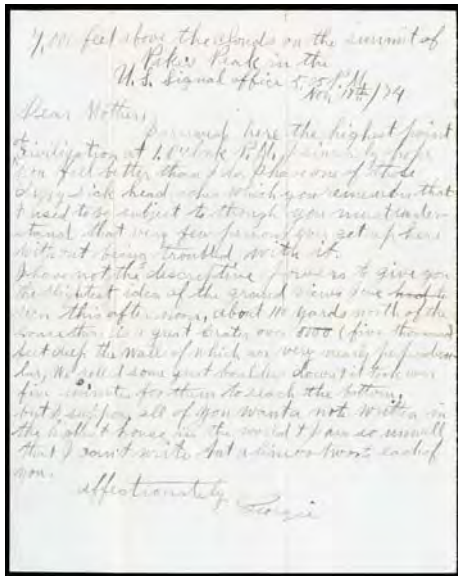 feet above the clouds on the summit of
Pikes Peak in the
U.S. Signal office 5.05 P.M.
Nov. 18th/74
Dear Mother,
I arrived here the highest point
of civilization at 1. O'clock P.M. I sincerely hope
you feel better than I do. I have one of those
sick head aches which you remember that
I used to be subject to though you must under-
stand that very few persons get up here
without being troubled with it.
I have not the descriptive powers to give you
the slightest idea of the grand views
seen this afternoon, about 110 yards north of the
is a great Crater over 5000 (five thousand)
feet deep the walls of which are very nearly perpendicu-
lar, We rolled some great boulders down it took over
five minutes for them to reach the bottom,
but I suppose all of you want a note written in
the highest house in the world & I am so unwell
that I can't write but a line or two to each of
you.
affectionately
Georgie